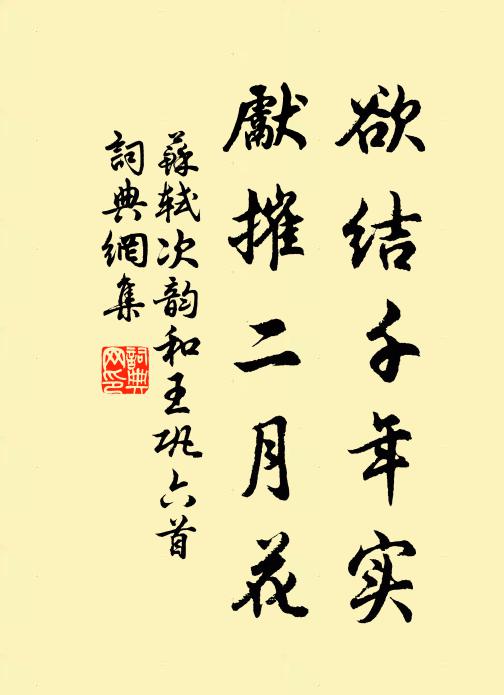 欲结千年实
獻摧二月花
蘇轼次韵和王巩六首
詞典網集
詞典网印